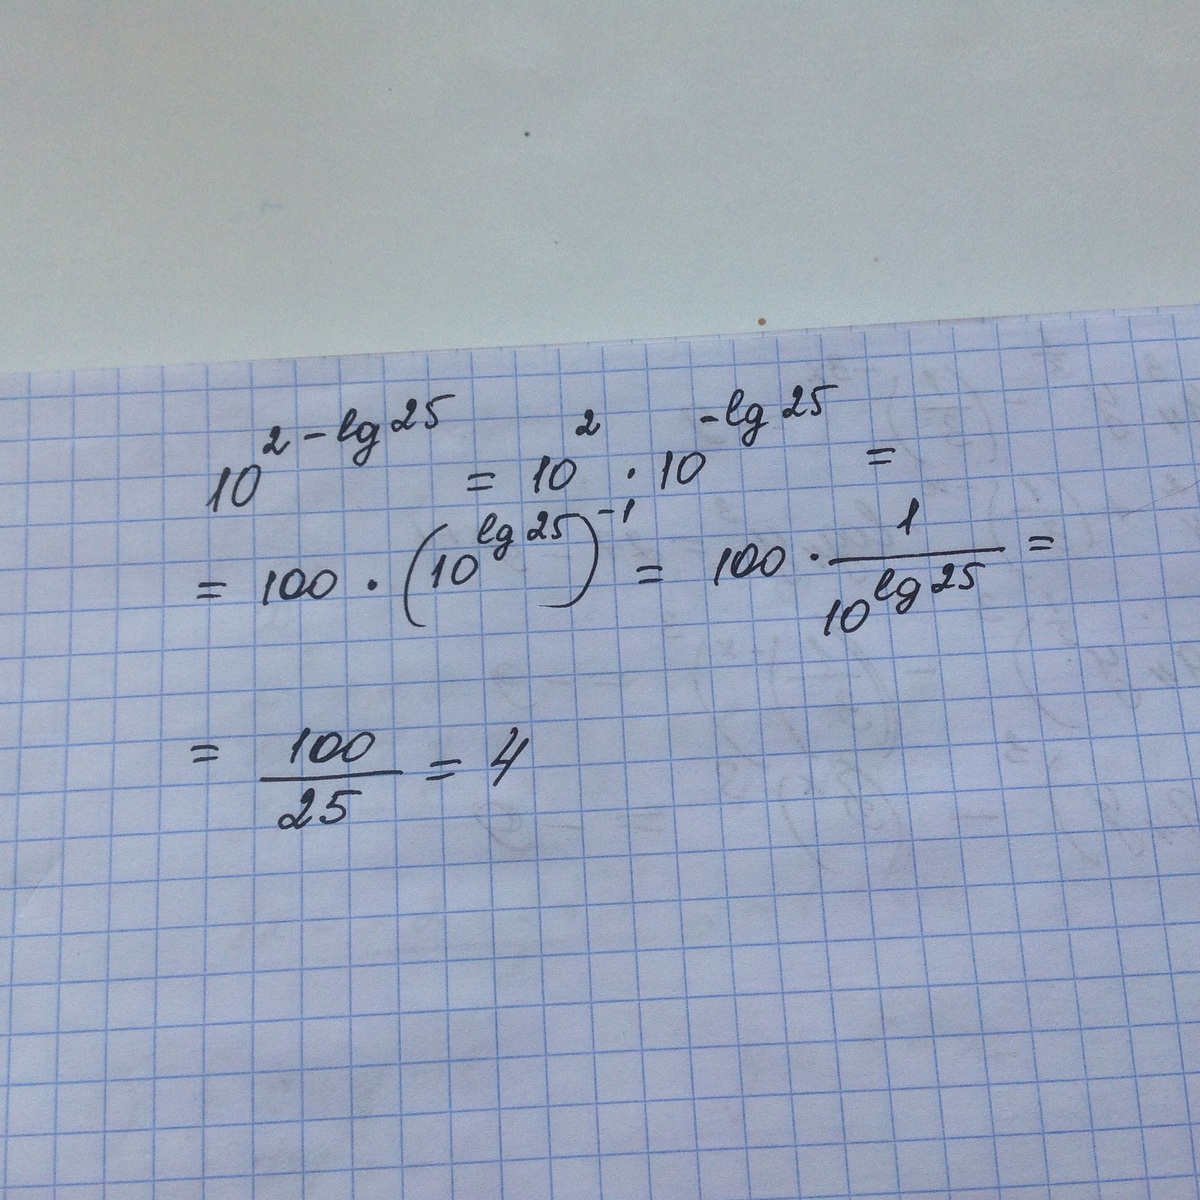 10^{2-lg 25} = 10^2 · 10^{-lg 25} =
= 100 · (10^{lg 25})^{-1} = 100 · \frac{1}{10^{lg 25}} =
= \frac{100}{25} = 4